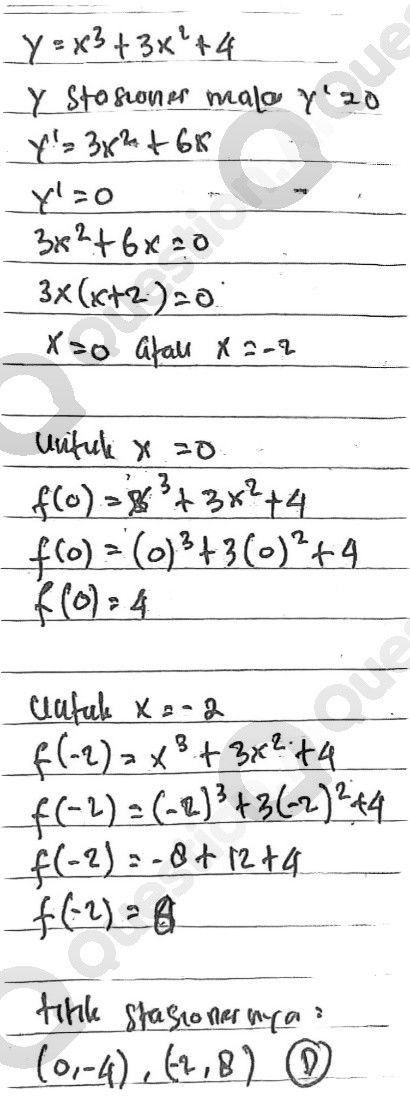 y = x³ + 3x² + 4
y stasioner maka y' = 0
y' = 3x² + 6x
y' = 0
3x² + 6x = 0
3x(x+2) = 0
x = 0 atau x = -2
untuk x = 0
f(0) = x³ + 3x² + 4
f(0) = (0)³ + 3(0)² + 4
f(0) = 4
untuk x = -2
f(-2) = x³ + 3x² + 4
f(-2) = (-2)³ + 3(-2)² + 4
f(-2) = -8 + 12 + 4
f(-2) = 8
titik stasionernya :
(0,-4), (-2,8) D